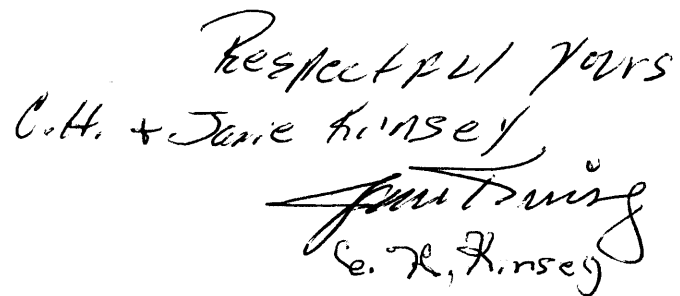 Respectful yours
C.H. + Janie Kinsey
C. H. Kinsey